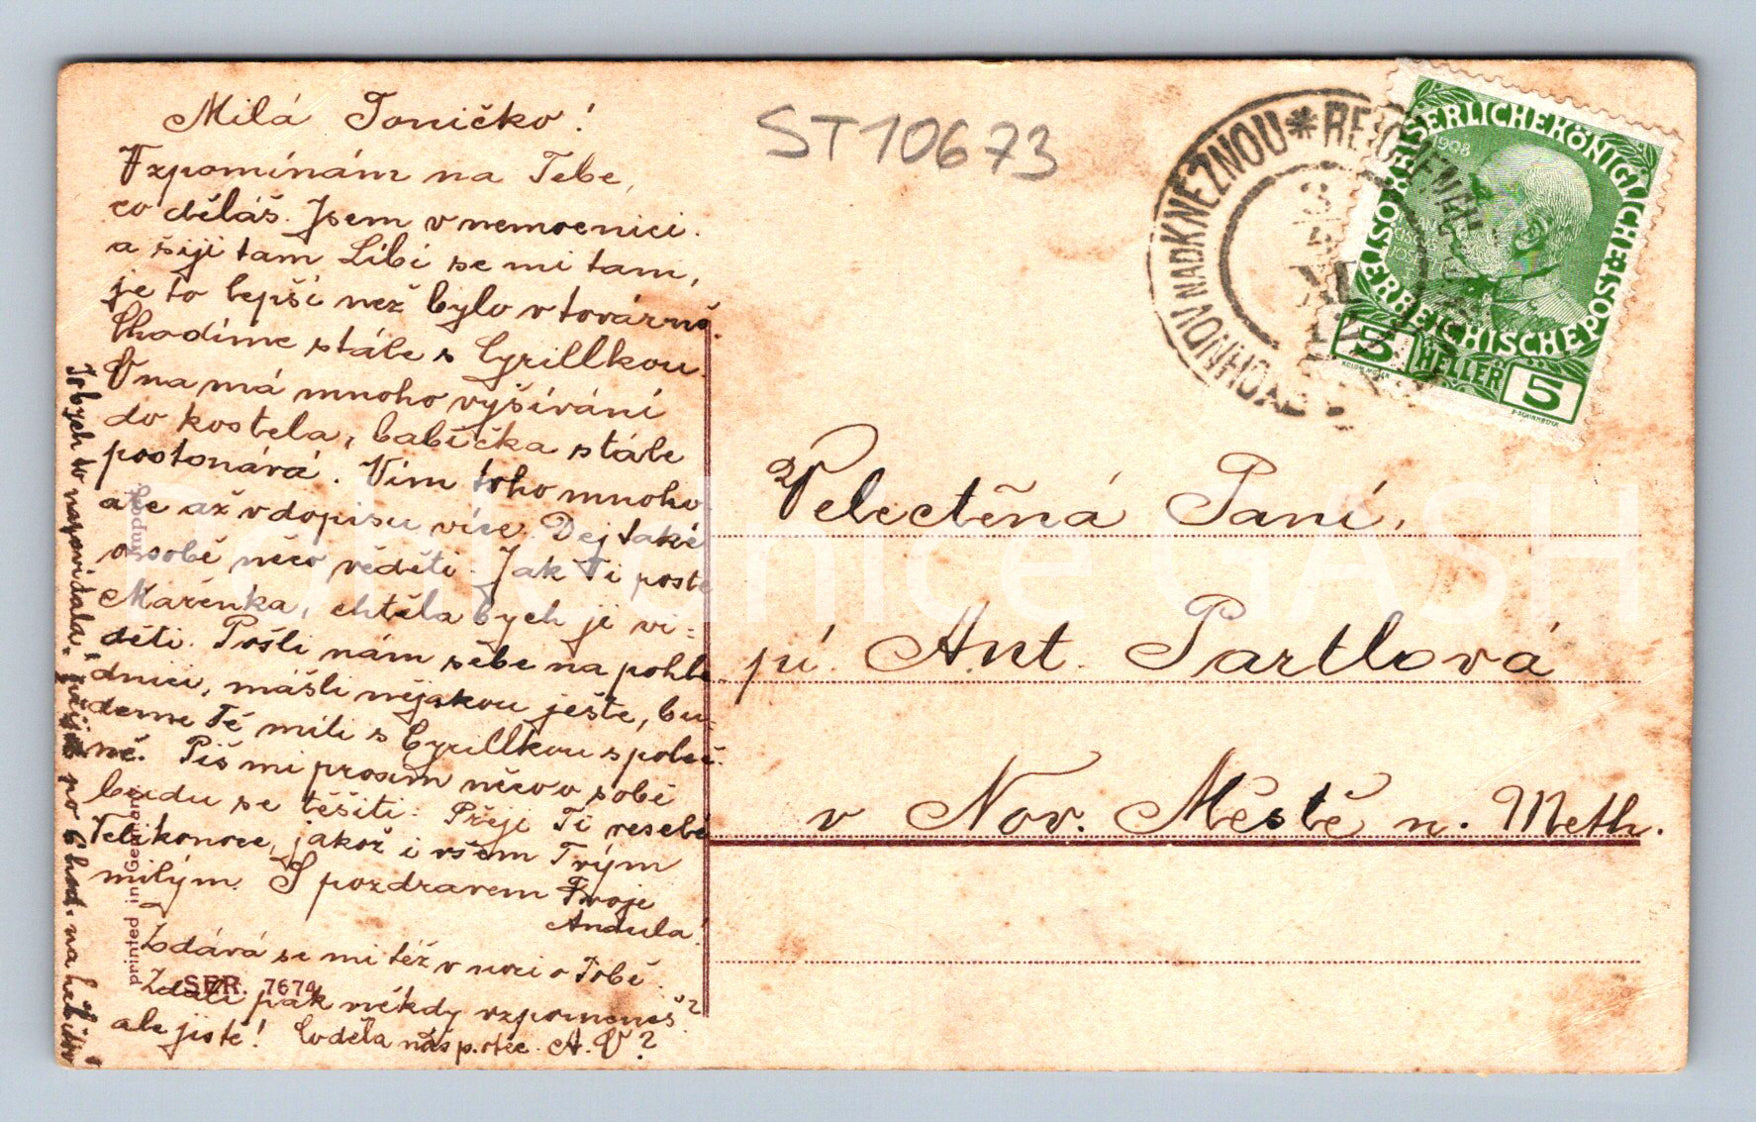 Milá Toničko!
Vzpomínám na Tebe,
co děláš. Jsem v nemocnici.
a šiji tam Líbí se mi tam,
je to lepší než bylo v továrně.
Chodíme stále s Cyrillkou.
Ona má mnoho vyšívání
do kostela, babička stále
postonává. Vím toho mnoho
ale až v dopisu více. Dej také
o sobě něco věděti. Jak Ti roste
Mařenka, chtěla bych je vi=
děti. Pošli nám sebe na pohle
dnici, mášli nějakou ještě, bu-
deme Tě míti s Cyrillkou společ.
ně. Piš mi prosim něco o sobě
budu se těšiti. Přeji Ti veselé
Velikonoce, jakož i všem Tvým
milým. S pozdravem Tvoje
Andula!
Zdává se mi též v noci o Tobě.
Zdali pak někdy vzpomeneš?
ale jistě! Co děla náš p. otec. A. V?
To bych to napovídala, přijít po 6 hod. na
Printed in Germany
SER. 7674
ST10673
JÁCHYMOV NAD KNĚŽNOU * REICHENAU
KAISERLICHE KÖNIGLICHE ÖSTERREICHISCHE POST
1908
5 HELLER 5
Velectěná Paní,
pí. Ant. Partlová
v Nov. Městě n. Meth.
Pohlednice GASH